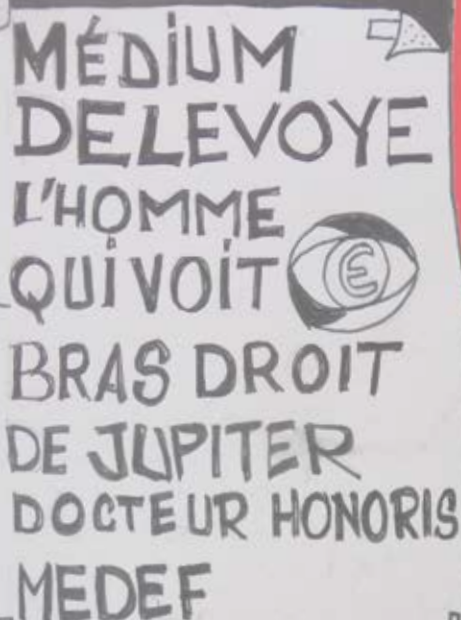 MÉDIUM
DELEVOYE
L'HOMME
QUI VOIT €
BRAS DROIT
DE JUPITER
DOCTEUR HONORIS
MEDEF